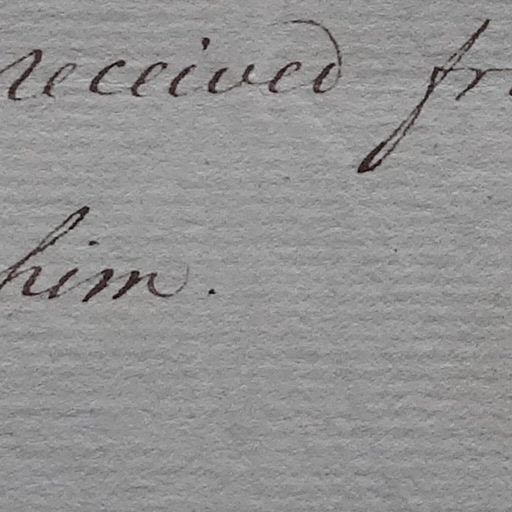 received fr
him.